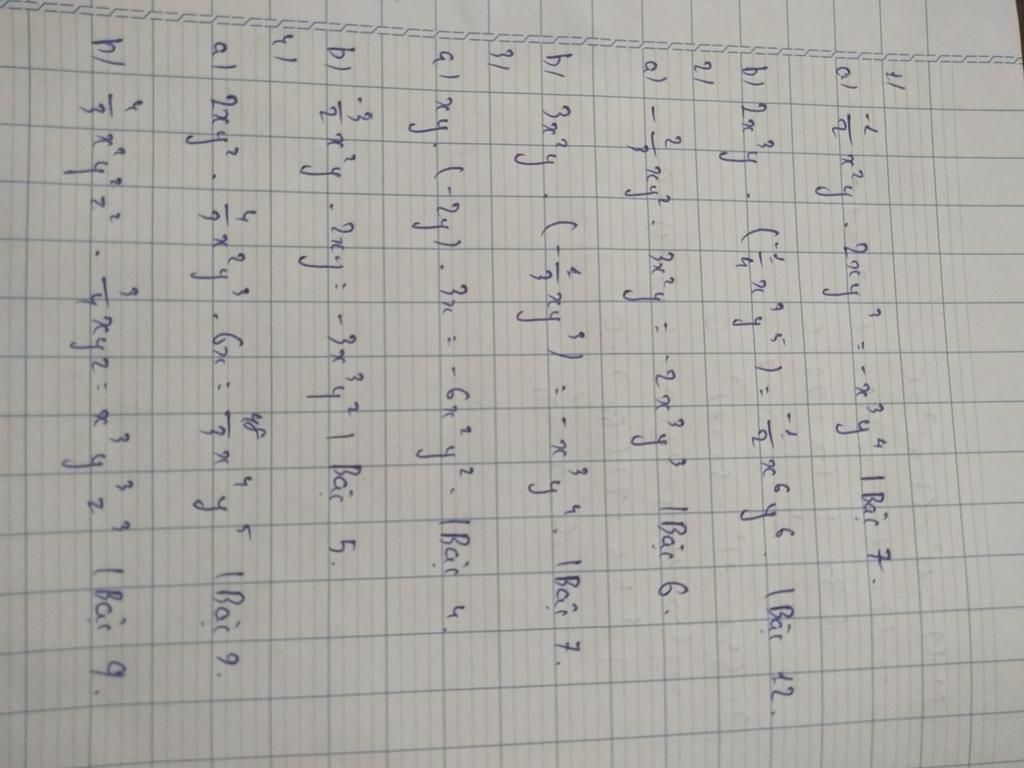 1)
a) -1/2 x²y . 2xy³ = -x³y⁴ | Bậc 7.
b) 2x³y . (-1/4 x³y⁵) = -1/2 x⁶y⁶ | Bậc 12.
2)
a) -2/3 xy² . 3x²y = -2x³y³ | Bậc 6.
b) 3x²y . (-1/3 xy³) = -x³y⁴. | Bậc 7.
3)
a) xy . (-2y) . 3x = -6x²y². | Bậc 4.
b) -3/2 x²y . 2xy = -3x³y² | Bậc 5.
4)
a) 2xy² . 4/9 x²y³ . 6x = 48/9 x⁴y⁵ | Bậc 9.
b) 4/3 x²y²z² . 3/4 xyz = x³y³z³ | Bậc 9.